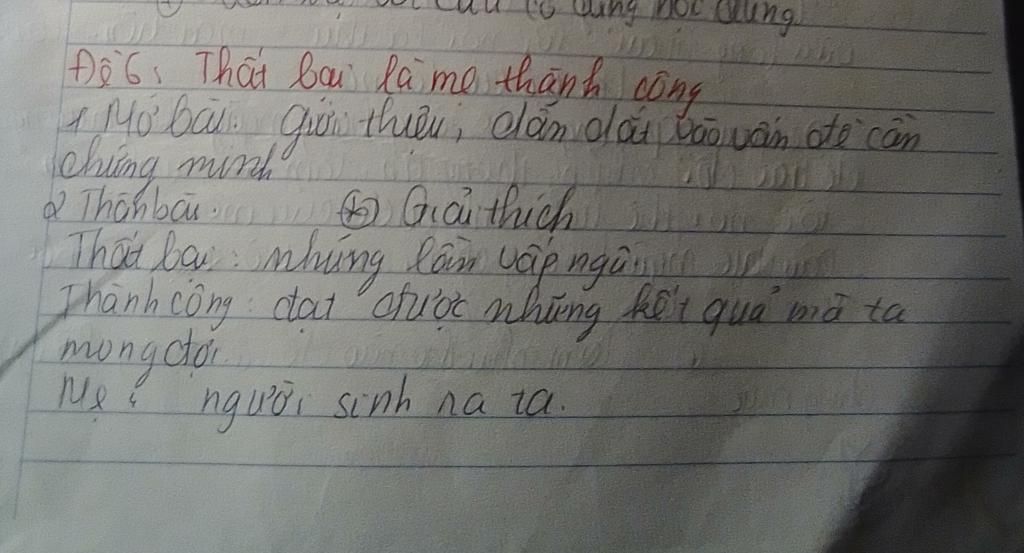 có dùng học đúng
Đề 6: Thất bại là mẹ thành công
1 Mở bài: giới thiệu, dẫn dắt vào vấn đề cần
chứng minh
2 Thân bài. (+) Giải thích
Thất bại: những lần vấp ngã
Thành công: đạt được những kết quả mà ta
mong đợi
Mẹ: người sinh ra ta.